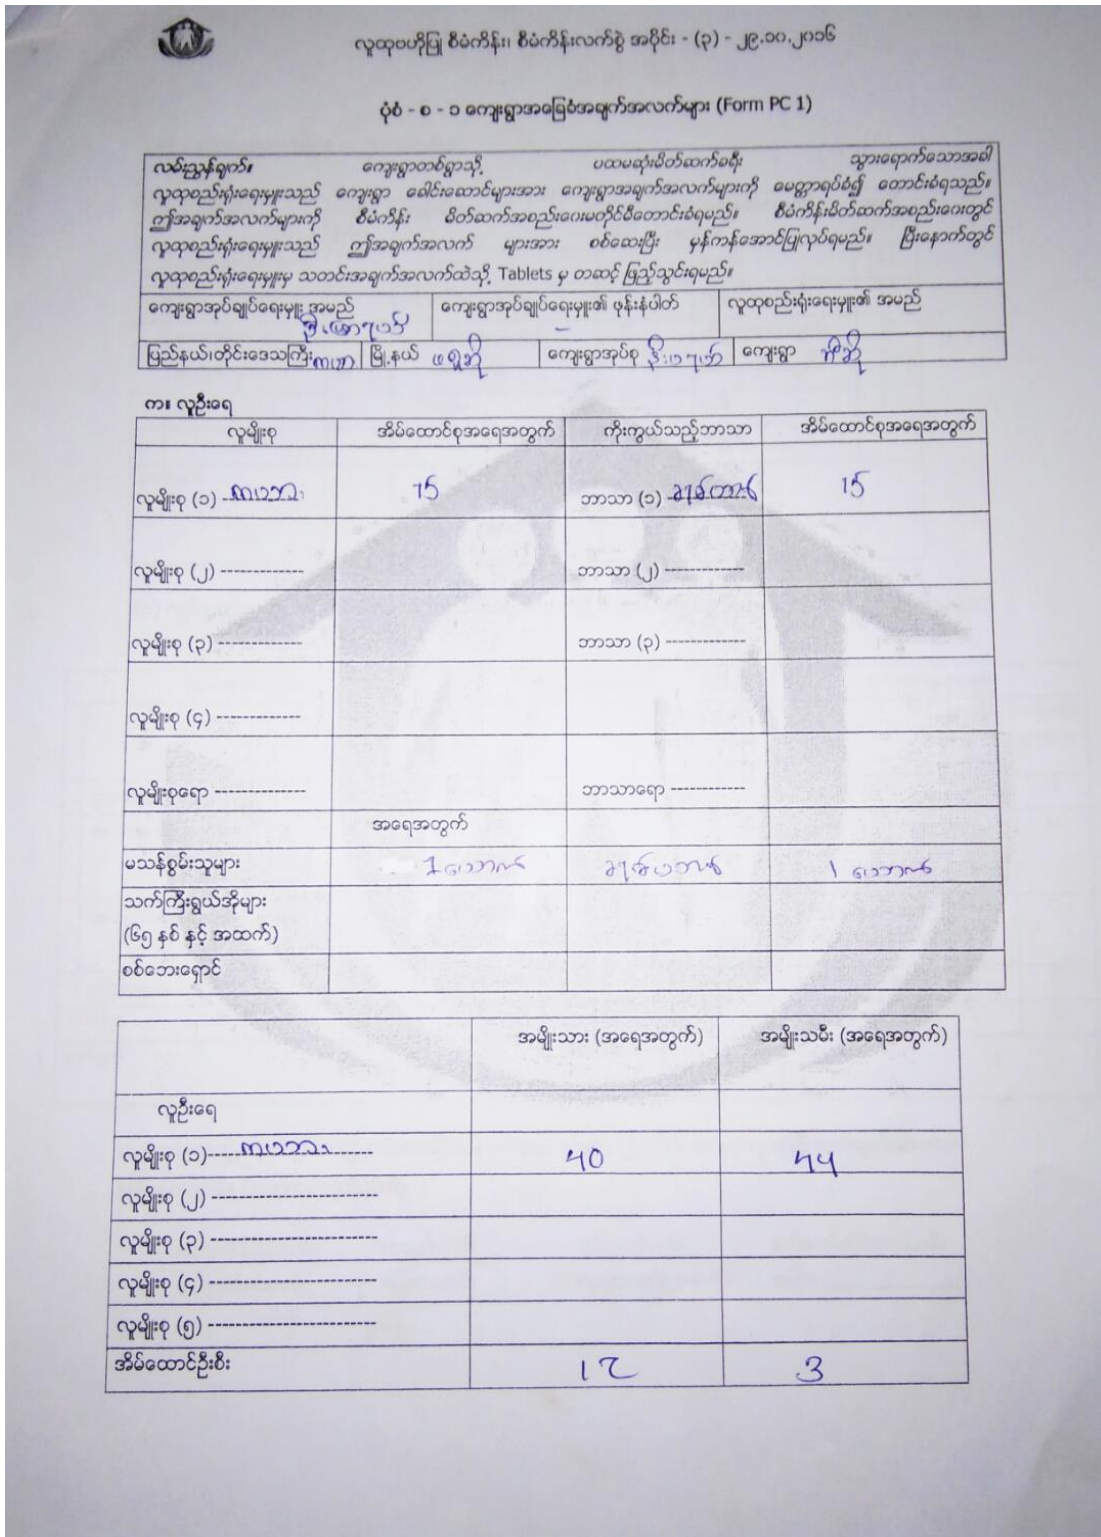 လူထုဗဟိုပြု စီမံကိန်း၊ စီမံကိန်းလက်စွဲ အပိုင်း - (၃) - ၂၉.၁၀.၂၀၁၆
ပုံစံ - စ - ၁ ကျေးရွာအခြေခံအချက်အလက်များ (Form PC 1)
လမ်းညွှန်ချက်။ ကျေးရွာတစ်ရွာသို့ ပထမဆုံးမိတ်ဆက်ခရီး သွားရောက်သောအခါ
လူထုစည်းရုံးရေးမှူးသည် ကျေးရွာ ခေါင်းဆောင်များအား ကျေးရွာအချက်အလက်များကို မေတ္တာရပ်ခံ၍ တောင်းခံရသည်။
ဤအချက်အလက်များကို စီမံကိန်း မိတ်ဆက်အစည်းဝေးမတိုင်မီတောင်းခံရမည်။ စီမံကိန်းမိတ်ဆက်အစည်းဝေးတွင်
လူထုစည်းရုံးရေးမှူးသည် ဤအချက်အလက် များအား စစ်ဆေးပြီး မှန်ကန်အောင်ပြုလုပ်ရမည်။ ပြီးနောက်တွင်
လူထုစည်းရုံးရေးမှူးမှ သတင်းအချက်အလက်ထဲသို့ Tablets မှ တဆင့် ဖြည့်သွင်းရမည်။
ကျေးရွာအုပ်ချုပ်ရေးမှူး အမည် ကျေးရွာအုပ်ချုပ်ရေးမှူး၏ ဖုန်းနံပါတ် - လူထုစည်းရုံးရေးမှူး၏ အမည်
ပြည်နယ်၊တိုင်းဒေသကြီး ကယား မြို့နယ် ဖရူဆို ကျေးရွာအုပ်စု ကျေးရွာ
က။ လူဦးရေ
လူမျိုးစု အိမ်ထောင်စုအရေအတွက် ကိုးကွယ်သည့်ဘာသာ အိမ်ထောင်စုအရေအတွက်
လူမျိုးစု (၁) ကယား 15 ဘာသာ (၁) ခရစ်ယာန် 15
လူမျိုးစု (၂) ------------- ဘာသာ (၂) -------------
လူမျိုးစု (၃) ------------- ဘာသာ (၃) -------------
လူမျိုးစု (၄) -------------
လူမျိုးစုရော -------------- ဘာသာရော ------------
အရေအတွက်
မသန်စွမ်းသူများ 1 ယောက် ခရစ်ယာန် 1 ယောက်
သက်ကြီးရွယ်အိုများ
(၆၅ နှစ် နှင့် အထက်)
စစ်ဘေးရှောင်
အမျိုးသား (အရေအတွက်) အမျိုးသမီး (အရေအတွက်)
လူဦးရေ
လူမျိုးစု (၁) ကယား 40 44
လူမျိုးစု (၂) --------------------------
လူမျိုးစု (၃) --------------------------
လူမျိုးစု (၄) --------------------------
လူမျိုးစု (၅) --------------------------
အိမ်ထောင်ဦးစီး 12 3